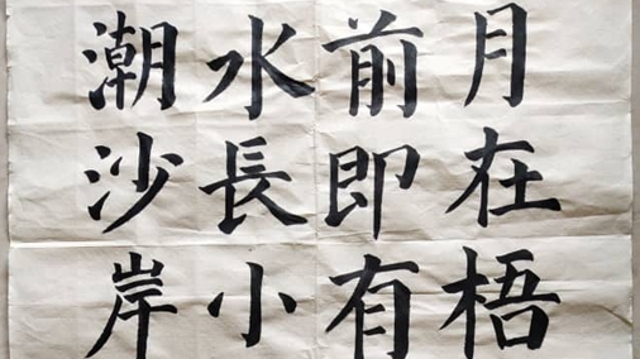 月在梧
前即有
水長小
潮沙岸